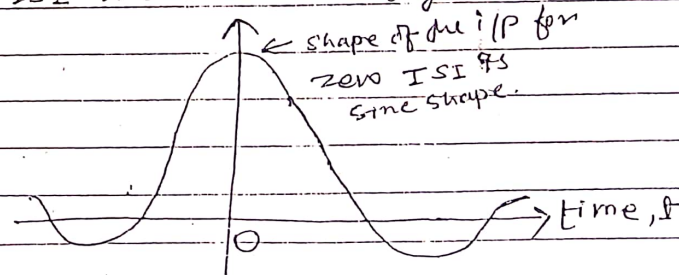 ISI
shape of the i/p for
zero ISI is
sine shape.
time, t
O